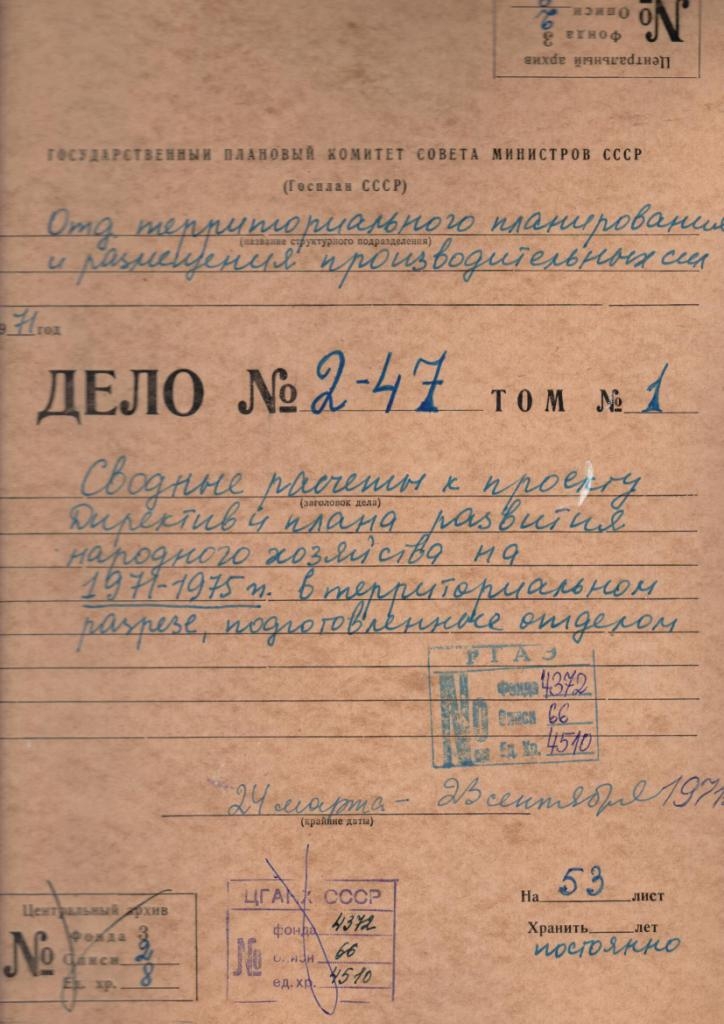 Центральный архив
№ Фонда 3
Описи 2
ГОСУДАРСТВЕННЫЙ ПЛАНОВЫЙ КОМИТЕТ СОВЕТА МИНИСТРОВ СССР
(Госплан СССР)
Отд территориального планирования
(название структурного подразделения)
и размещения производительных сил
971 год
ДЕЛО № 2-47 ТОМ № 1
Сводные расчеты к проекту
(заголовок дела)
Директив и плана развития
народного хозяйства на
1971-1975 гг. в территориальном
разрезе, подготовленные отделом
РГАЭ
№ Фонда 4372
Описи 66
Ед. Хр. 4510
24 марта - 23 сентября 1971
(крайние даты)
Центральный архив
№ Фонда 3
Описи 2
Ед. хр. 8
ЦГАНХ СССР
№ фонда 4372
описи 66
ед. хр. 4510
На 53 лист
Хранить лет
постоянно